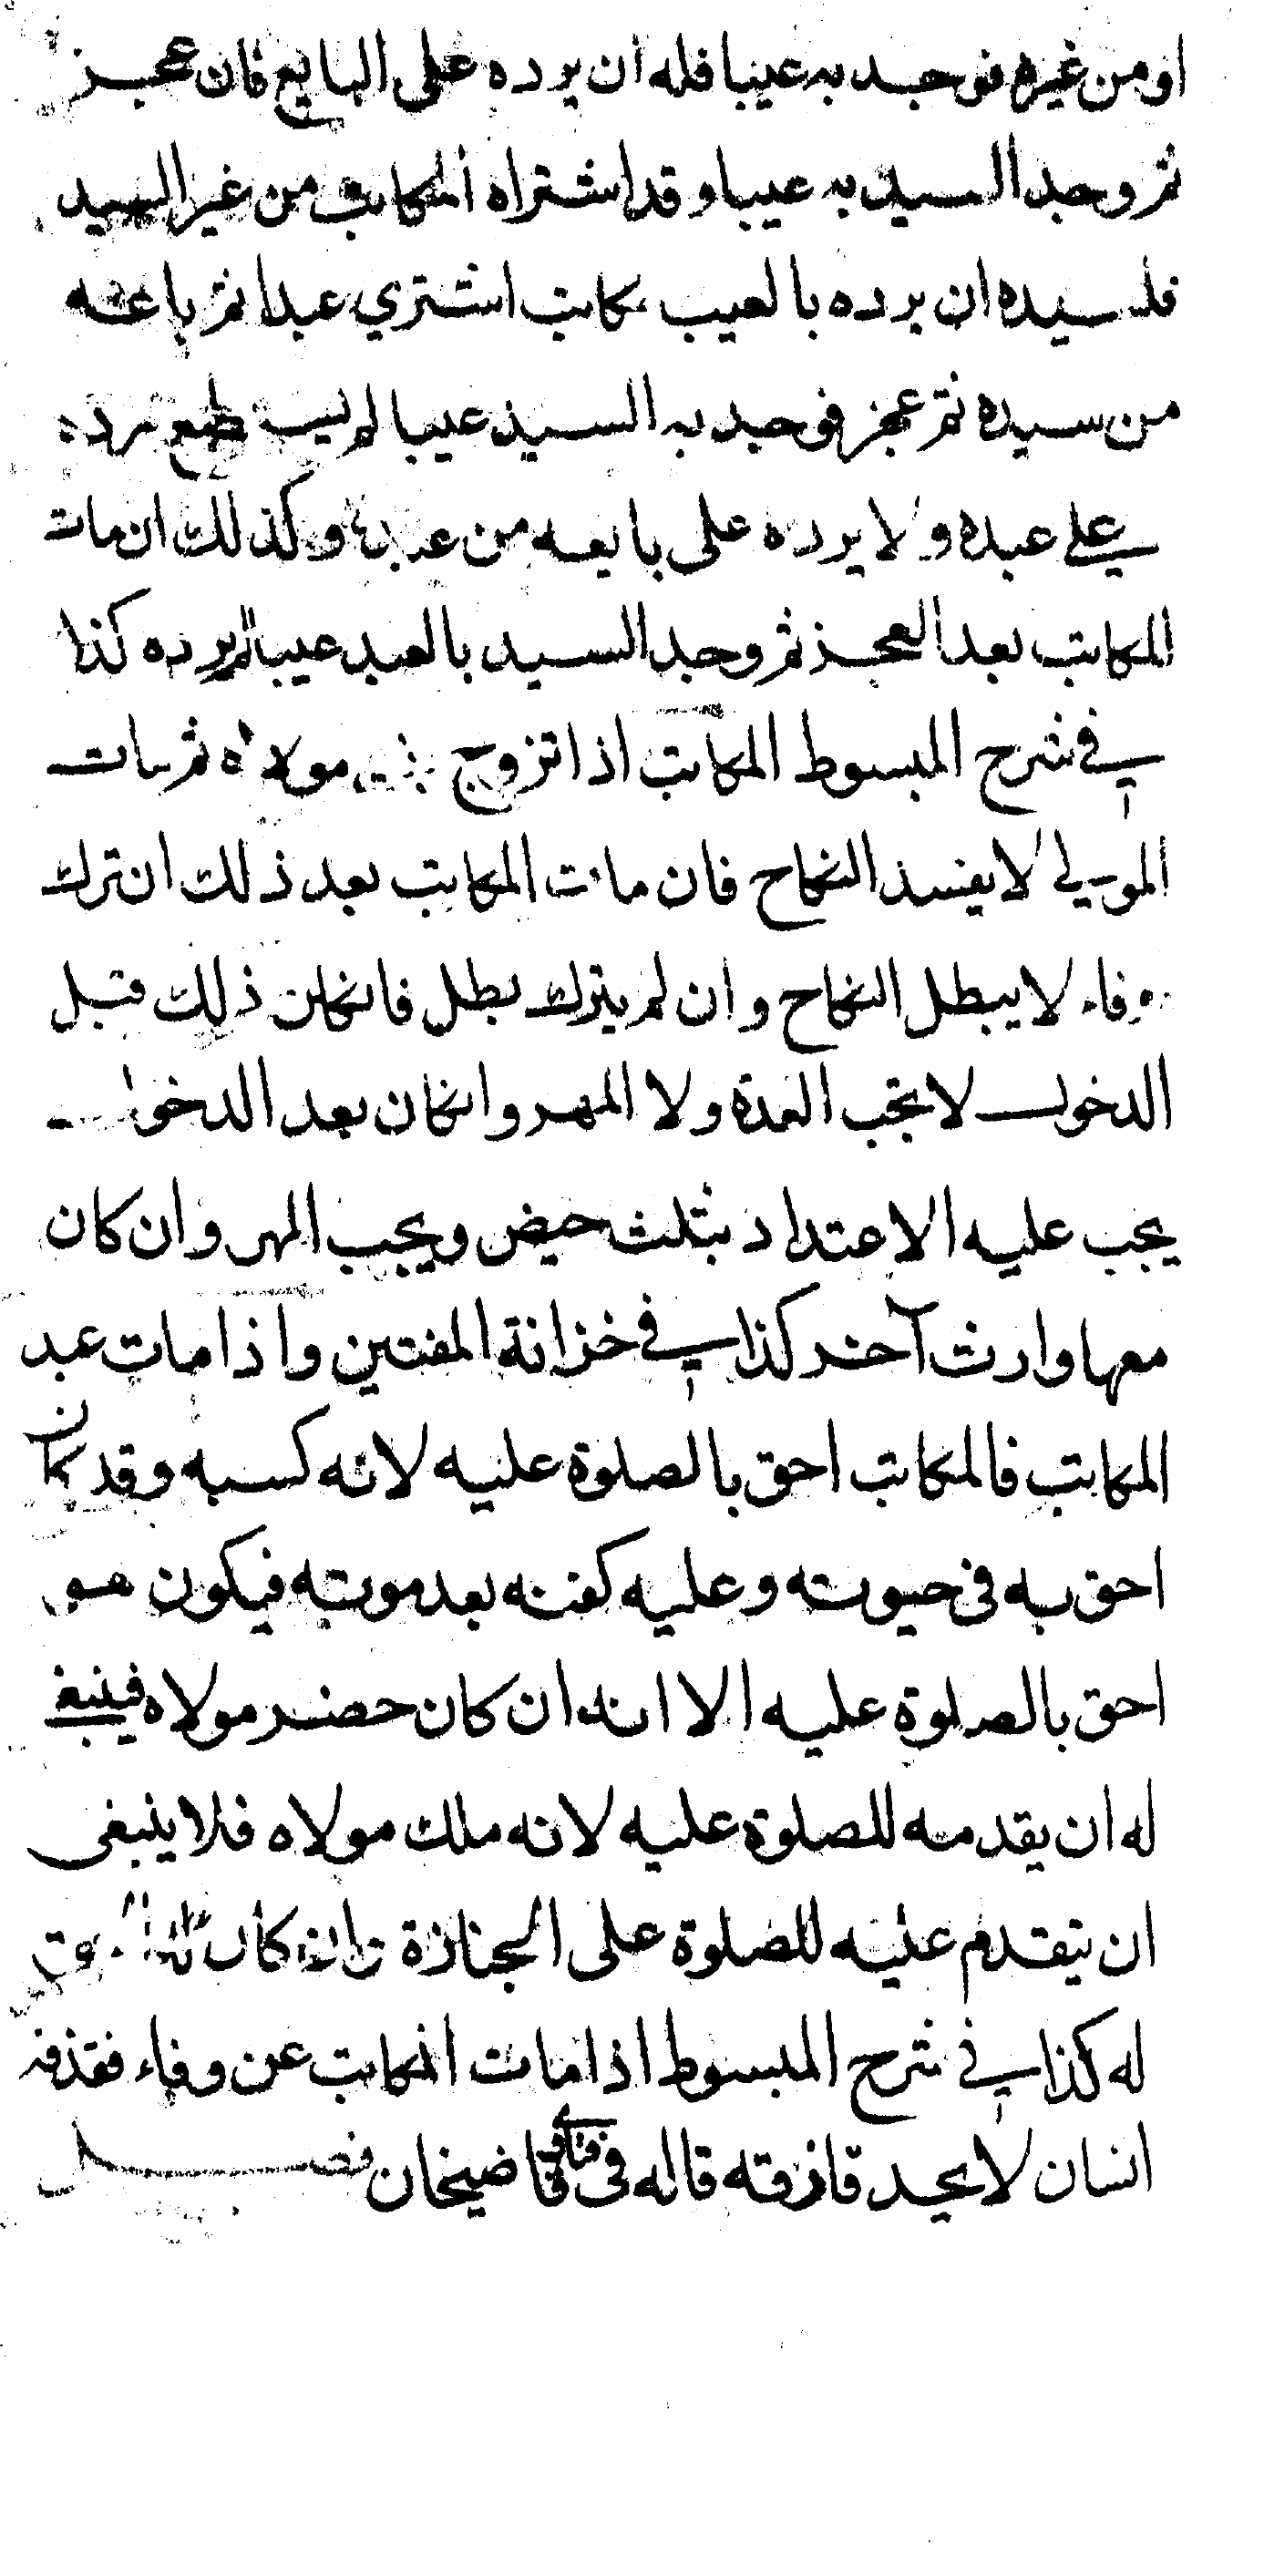 او من غيره فوجد به عيبا فله ان يرده على البايع فان عجز
ثم وجد السيد به عيبا وقد اشتراه المكاتب من غير السيد
فلسيده ان يرده بالعيب مكاتب اشتري عبدا ثم باعه
من سيده ثم عجز فوجد به السيد عيبا لم يستطع يرده
علي عبده ولا يرده على بايعه من عبده وكذلك ان مات
المكاتب بعد العجز ثم وجد السيد بالعبد عيبا لم يرده كذا
في شرح المبسوط المكاتب اذا تزوج بنت مولاه ثم مات
المولي لا يفسد النكاح فان مات المكاتب بعد ذلك ان ترك
وفاء لا يبطل النكاح وان لم يترك بطل فانكان ذلك قبل
الدخول لا يجب العدة ولا المهر وانكان بعد الدخول
يجب عليه الاعتداد بثلث حيض ويجب المهر وان كان
معها وارث آخر كذا في خزانة المفتين واذا مات عبد
المكاتب فالمكاتب احق بالصلوة عليه لانه كسبه وقد كان
احق به في حيوته وعليه كفنه بعد موته فيكون هو
احق بالصلوة عليه الا انه ان كان حضر مولاه فينبغي
له ان يقدمه للصلوة عليه لانه ملك مولاه فلا ينبغى
ان يتقدم عليه للصلوة على الجنازة وان كان
له كذا في شرح المبسوط اذا مات المكاتب عن وفاء فقذفه
انسان لا يحد قاذفه قاله في فتاوى قاضيخان فصل